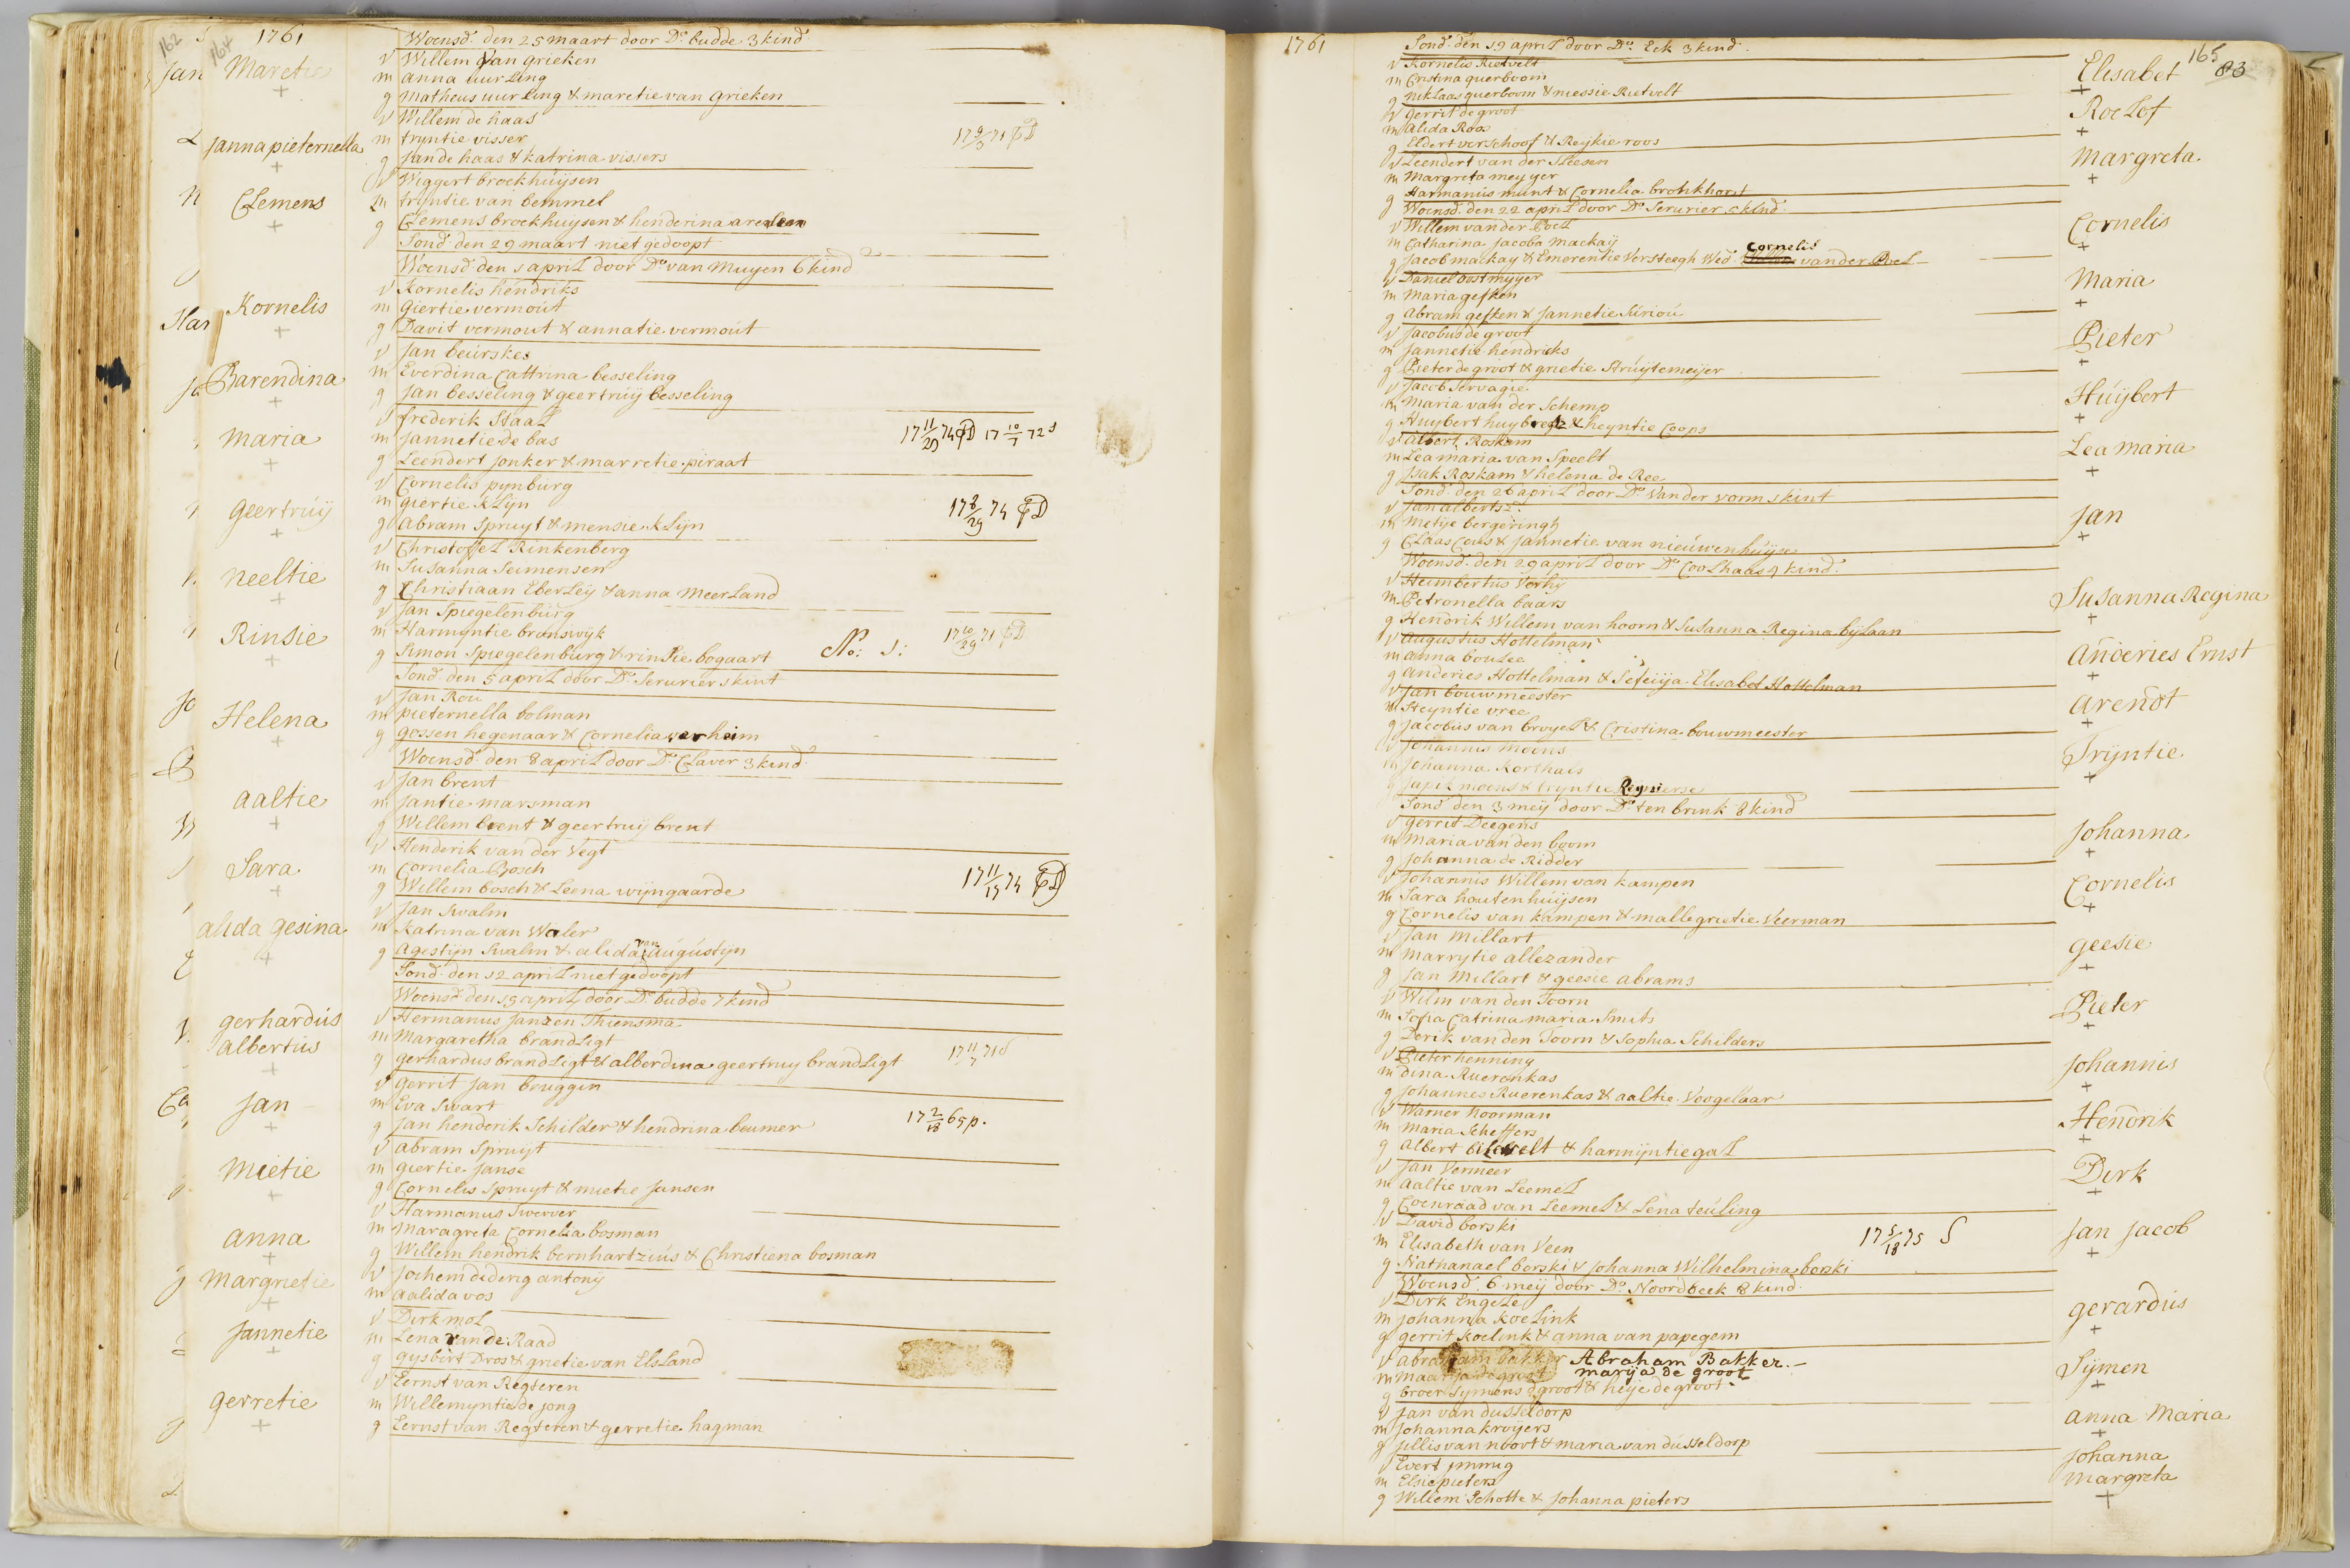 162
164
1761
Woensd. den 25 maart door Do. budde 3 kind
Maretie
v Willem van grieken
m anna uurling
g matheus uurling & maretie van grieken
Janna pieternella
v Willem de haas
m tryntie visser
g Jan de haas & katrina vissers
Clemens
v Wiggert broekhuijsen
m tryntie van bemmel
g Clemens broekhuysen & henderina
Sond. den 29 maart niet gedoopt
Woensd. den 1 april door Do. van Muyen 6 kind
Kornelis
v Kornelis hendriks
m giertie vermout
g Davit vermout & annatie vermout
Barendina
v Jan beurskes
m Everdina Cattrina besseling
g Jan besseling & geertruij besseling
Maria
v frederik Staal
m Jannetie de bas
g Leendert Jonker & marretie piraat
geertruij
v Cornelis pynburg
m giertie klijn
g abram Spruyt & mensie klijn
neeltie
v Christoffel Rinkenberg
m Susanna Seimensen
g Christiaan Eberleij & anna Meerland
Rinsie
v Jan Spiegelenburg
m Harmyntie brunswijk
g Simon Spiegelenburg & rinsie bogaart No: 1:
Sond. den 5 april door Do. Serurier 1 kint
Helena
v Jan Rou
m pieternella bolman
g gossen hegenaar & Cornelia verheim
Woensd. den 8 april door Do. Claver 3 kind
aaltie
v Jan brent
m Jantie marsman
g Willem brent & geertruij brent
Sara
v Henderik van der Vegt
m Cornelia Bosch
g Willem bosch & Leena wijngaarde
alida gesina
v Jan Swalin
m Katrina van Waler
g agestijn Swalin & alida van augustijn
Sond. den 12 april niet gedoopt
Woensd. den 15 april door Do. budde 7 kind
gerhardus albertus
v Hermanus Janzen Thiensma
m Margaretha brandligt
g gerhardus brandligt & alberdina geertruy brandligt
Jan
v gerrit Jan bruggin
m Eva Swart
g Jan henderik Schilder & hendrina beumer
mietie
v abram Spruyt
m giertie Janse
g Cornelis Spruyt & mietie Jansen
anna
v Harmanus Swerver
m maragreta Cornelia bosman
g Willem hendrik bernhartzius & Christiena bosman
margrietie
v Jochem diderig antonij
m aalida vos
Jannetie
v Dirk mol
m Lena van de Raad
g gysbert Dros & grietie van Elsland
gerretie
v Eernst van Regteren
m Willemyntie de jong
g Eernst van Regteren & gerretie hagman
1761
165
83
Sond. den 19 april door Do. Eck 3 kind
Elisabet
v Kornelis Rietvelt
m Cristina querboom
g niklaas querboom & niessie Rietvelt
Roelof
v gerrit de groot
m alida Roos
g Eldert verschoof & Reijkie roos
margreta
v Leendert van der Sleesen
m Margreta meyer
g Harmanus munt & Cornelia bronkhorst
Woensd. den 22 april door Do. Serurier 5 kind
Cornelis
v Willem van der Poel
m Catharina Jacoba mackaij
g Jacob mackay & Emerentie Versteegh Wed. Cornelis van der Poel
Maria
v Daniel oostmyyer
m Maria gesken
g abram gesken & Jannetie Siriou
Pieter
v Jacobus de groot
m Jannetie hendriks
g Pieter de groot & grietie Struijtemeijer
Huijbert
v Jacob Servagie
m maria van der Schemp
g Huybert huybregtz & heyntie Coops
Lea maria
v albert Roskam
m Lea maria van Speelt
g Isak Roskam & helena de Ree
Sond. den 26 april door Do. van der vorm 1 kint
Jan
v Jan alberts
m Metije bergeringh
g Claas Cous & Jannetie van nieuwenhuijse
Woensd. den 29 april door Do. Coolhaas 4 kind
Susanna Regina
v Heimbertus Verhij
m Petronella baars
g Hendrik Willem van hoorn & Susanna Regina bijlaan
anderies Ernst
v augustus Hottelman
m anna boulee
g anderies Hottelman & Elisabet Hottelman
arendt
v Jan bouwmeester
m Steyntie vree
g Jacobus van broyel & Cristina bouwmeester
Tryntie
v Johannis moens
m Johanna Korthals
g moens & tryntie Reynierse
Sond. den 3 meij door Do. ten brink 8 kind
Johanna
v gerrit Deegens
m maria van den boom
g Johanna de Ridder
Cornelis
v Johannis Willem van kampen
m Sara houtenhuijsen
g Cornelis van kampen & mallegrietie Veerman
geesie
v Jan Millart
m marrytie allezander
g Jan Millart & geesie abrams
Pieter
v Wilm van den Toorn
m Sofia Catrina maria Smits
g Derik van den Toorn & Sophia Schilders
Johannis
v Pieter henning
m dina Ruerenkas
g Johannes Ruerenkas & aaltie Voogelaar
Hendrik
v Warner Noorman
m maria Scheffers
g albert & harmijntie gal
Dirk
v Jan Vermeer
m aaltie van Leemel
g Coenraad van Leemel & Lena teuling
Jan Jacob
v David borski
m Elisabeth van Veen
g Nathanael borski & Johanna Wilhelmina borski
Woensd. 6 meij door Do. Noordbeek 8 kind
gerardus
v Dirk Engele
m Johanna Koelink
g gerrit koelink & anna van papegem
Sijmen
v abraham bakker Abraham Bakker.
m maarija de groot marija de groot
g broer Symens de groot & heije de groot
anna Maria
v Jan van dusseldorp
m Johanna kruyers
g Jillis van noort & maria van dusseldorp
Johanna Margreta
v Evert
m Elsie pieters
g Willem Schotte & Johanna pieters